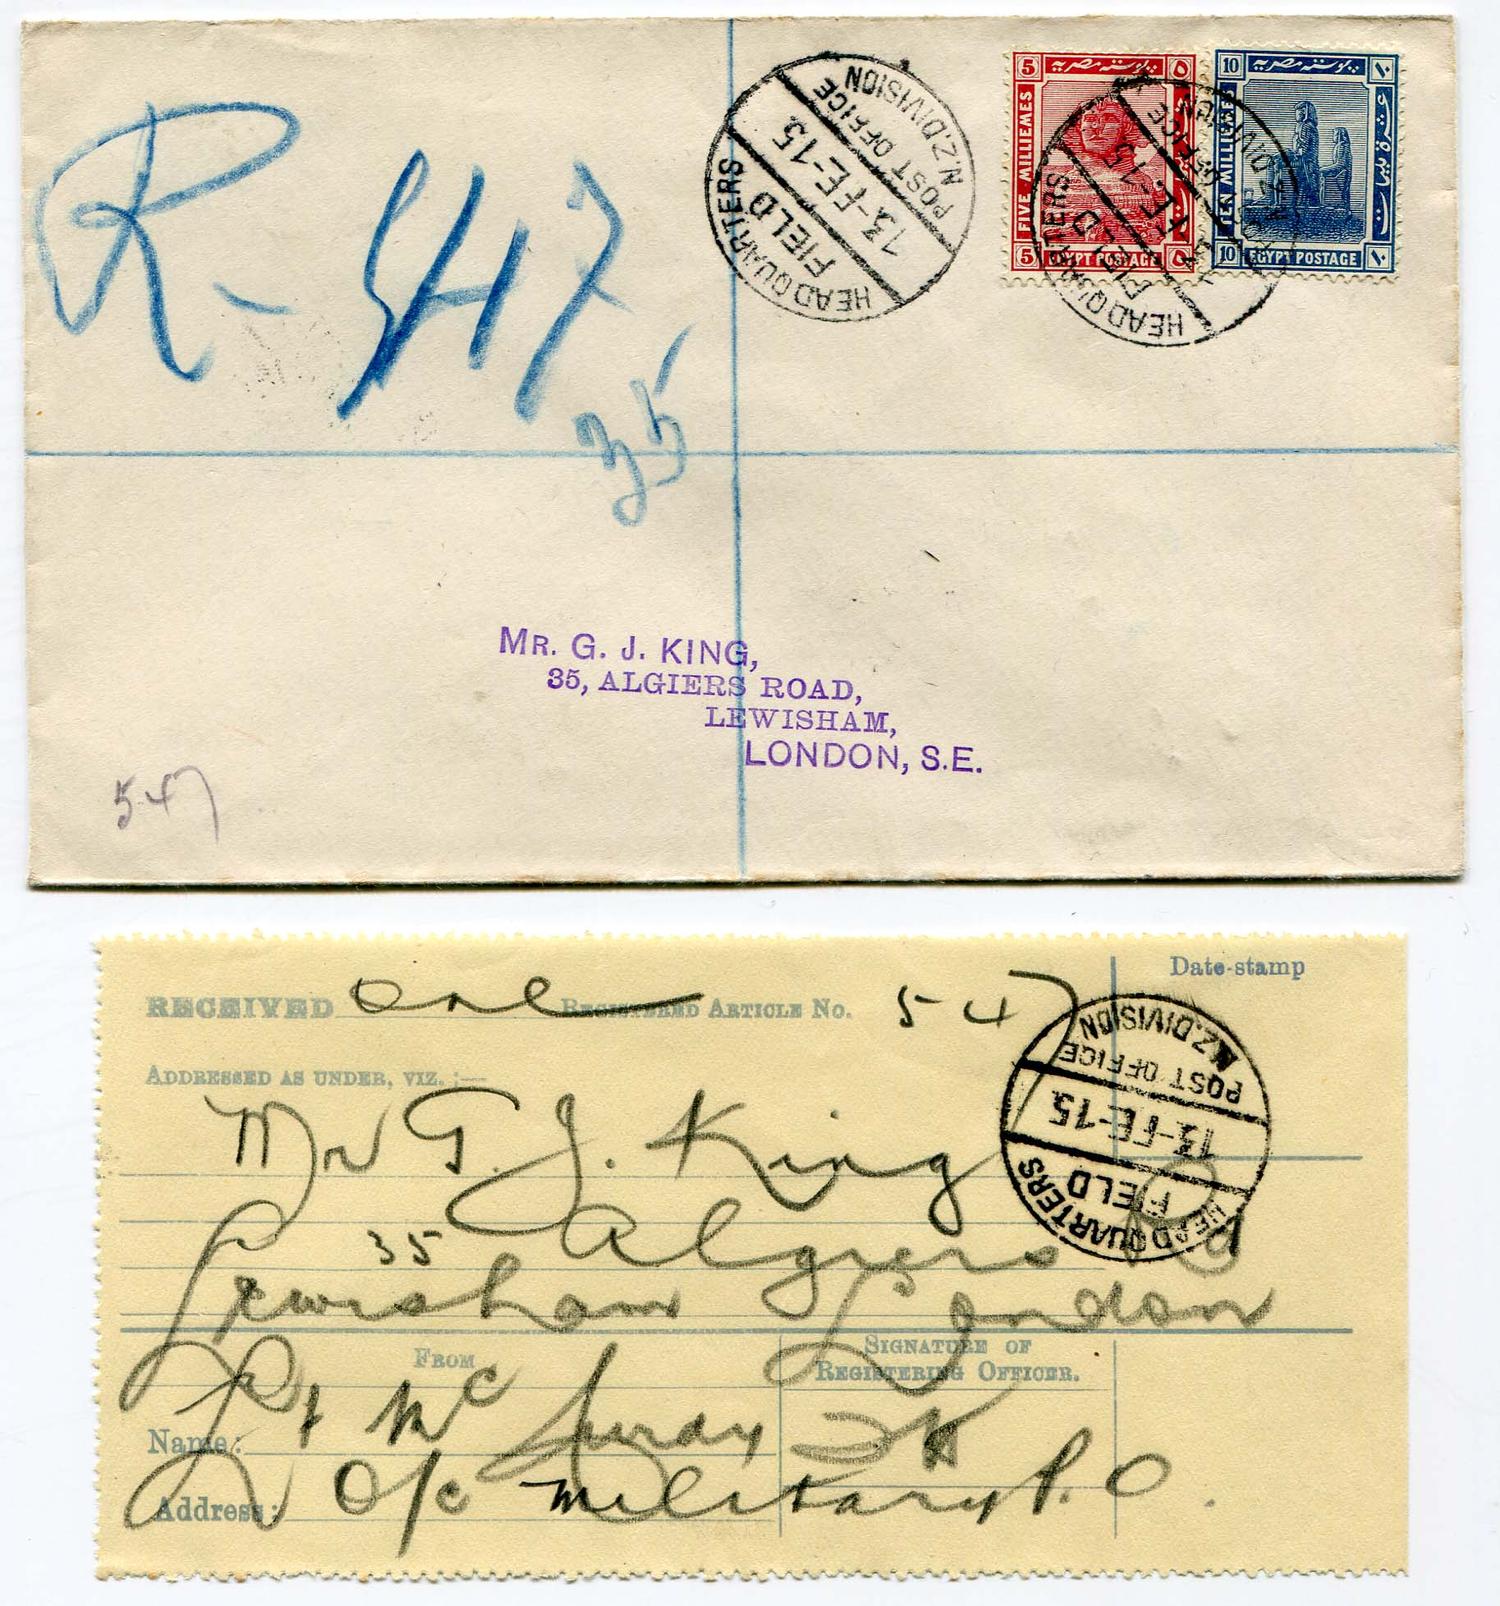 R - 547
35
HEADQUARTERS
FIELD
13-FE-15.
POST OFFICE
N.Z.DIVISION
5 پوستة مصرية ٥
FIVE MILLIEMES
5 EGYPT POSTAGE ٥
10 پوستة مصرية ١٠
TEN MILLIEMES
عشرة مليمات
10 EGYPT POSTAGE ١٠
HEADQUARTERS
FIELD
FE-15
POST OFFICE
N.Z.DIVISION
MR. G. J. KING,
35, ALGIERS ROAD,
LEWISHAM,
LONDON, S.E.
547
Date-stamp
RECEIVED one REGISTERED ARTICLE NO. 547
ADDRESSED AS UNDER, VIZ. :—
Mr G. J. King
35 Algiers Rd
Lewisham London
N.Z.DIVISION
POST OFFICE
13-FE-15.
FIELD
HEADQUARTERS
FROM
SIGNATURE OF
REGISTERING OFFICER.
Name: Pt Mc
Address: O/c Military P.O.